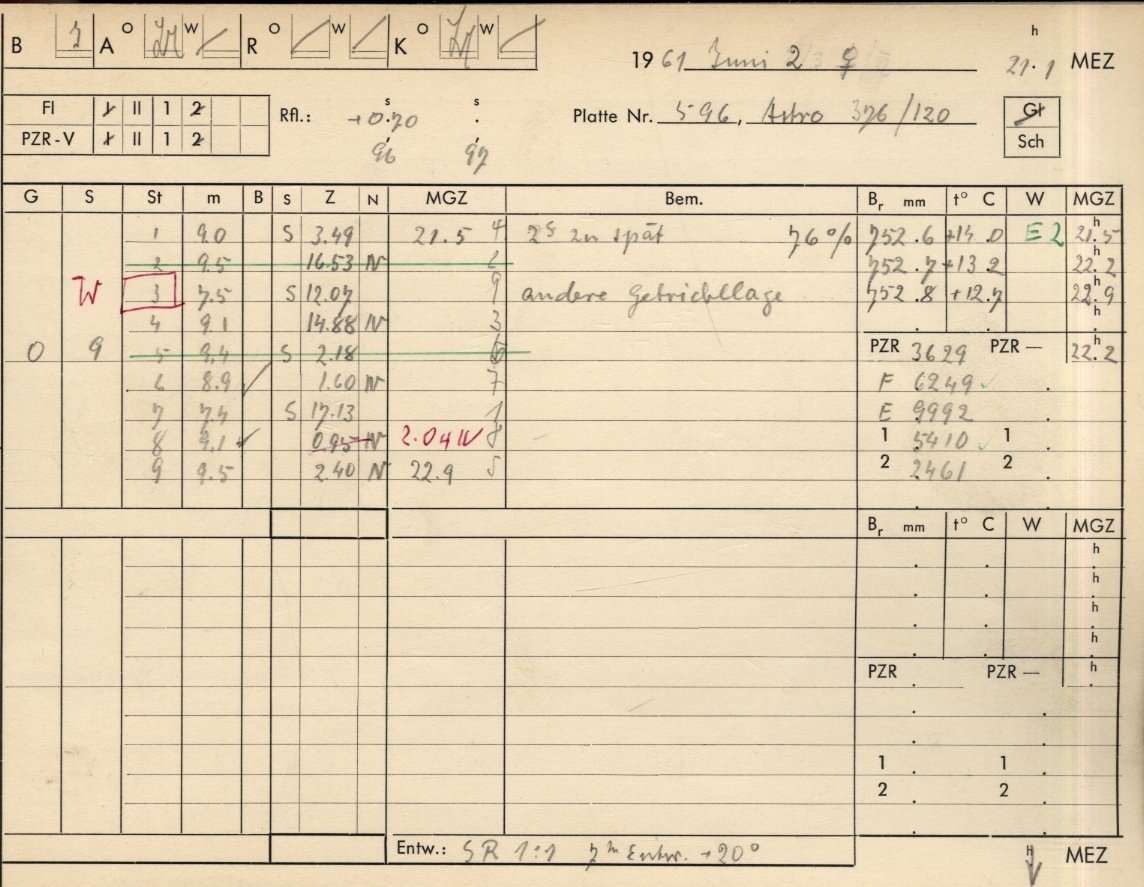 B A O W R O W K O W 1961 Juni 2 21.1 h MEZ
Fl I II 1 2 Rfl.: +0.70 s s Platte Nr. 596, Astro 376/120 Gl
PZR-V I II 1 2 96 97 Sch
G S St m B S Z N MGZ Bem. Br mm t° C W MGZ
1 9.0 S 3.49 21.5 4 2s zu spät 76% 752.6 +14.0 E2 21.5 h
2 9.5 16.53 N 752.7 +13.2 22.2 h
W 3 7.5 S 12.07 9 andere Getriebllage 752.8 +12.7 22.9 h
4 9.1 14.88 N 3
0 9 5 9.4 S 2.18 PZR 3629 PZR— 22.2 h
6 8.9 1.60 N 7 F 6249
7 7.4 S 17.13 1 E 9992
8 9.1 0.95 N 2.04 W 8 1 5410 1
9 9.5 2.40 N 22.9 5 2 2461 2
Br mm t° C W MGZ
h
h
h
h
PZR PZR— h
1 1
2 2
Entw.: SR 1:1 7m Entw. +20° h MEZ